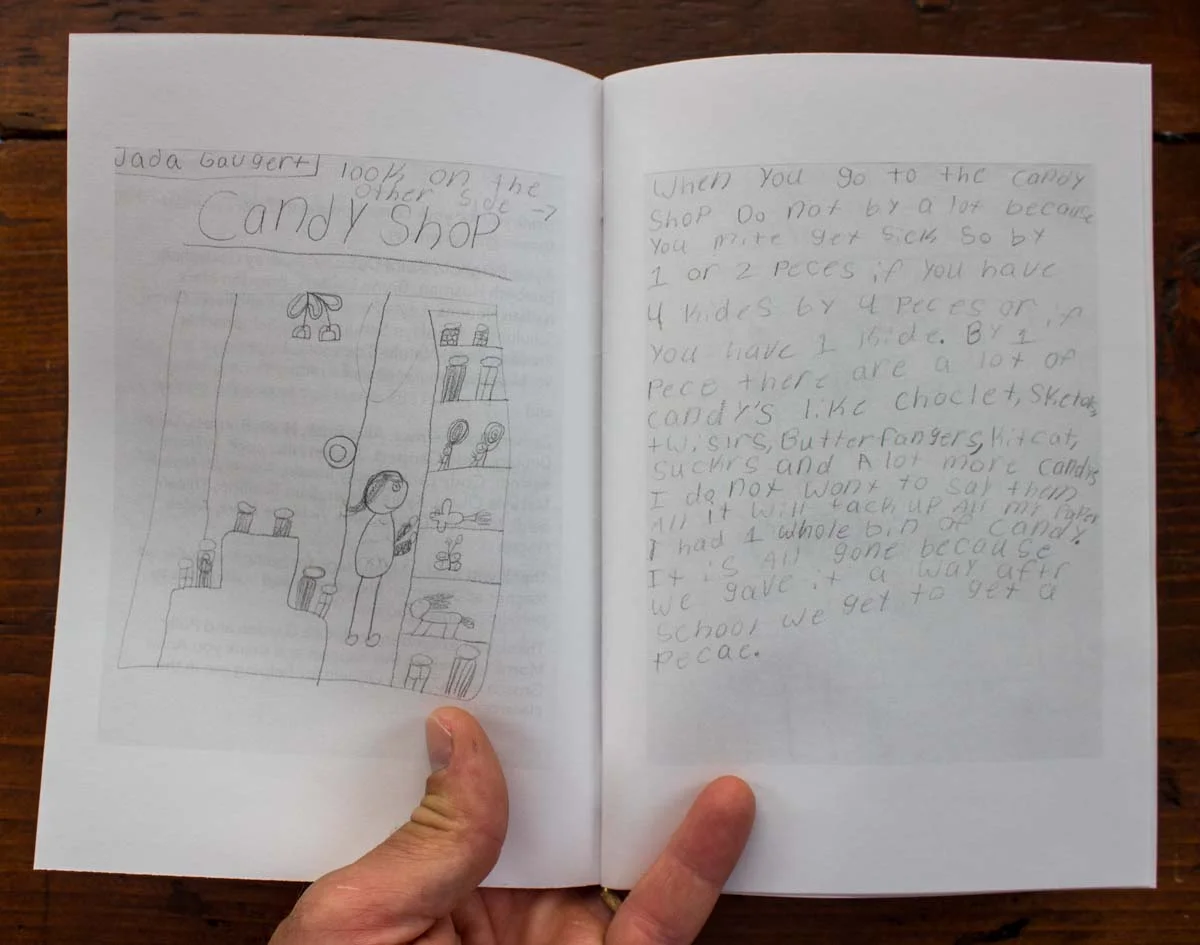 Jada Gaugert
look on the
other side →
Candy Shop
When you go to the candy
Shop Do not by a lot because
you mite get sick so by
1 or 2 peces if you have
4 kides by 4 peces or if
you have 1 kide. By 1
pece there are a lot of
candy's like choclet, Sketols,
twisirs, Butterfangers, kitcat,
suckrs and A lot more candys
I do not wont to say them
All it will tack up All my paper
I had 1 whole bin of candy.
It is All gone because
we gave it a way aftr
school we get to get a
pecae.